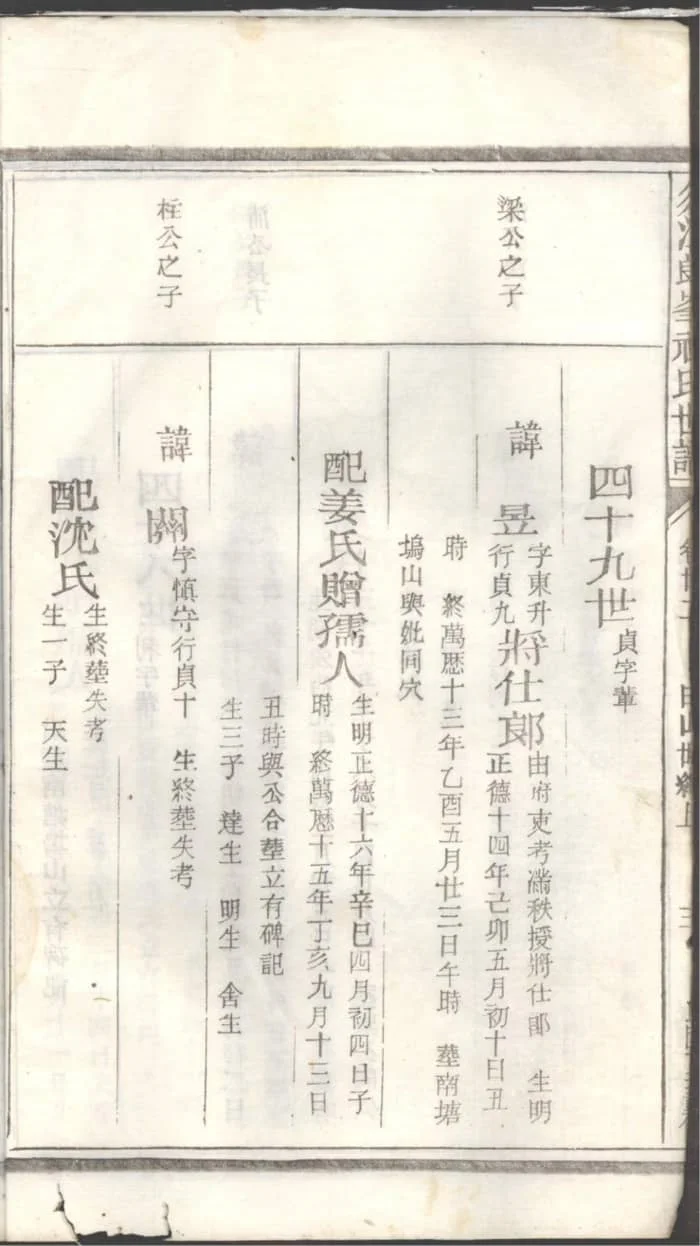 郎峯祝氏世譜
四十九世 貞字輩
梁公之子
諱 昱 字東升
行貞九 將仕郎 由府吏考滿秩授將仕郎 生明
正德十四年己卯五月初十日丑
時 終萬歷十三年乙酉五月廿三日午時 塟南塘
塢山與妣同穴
配姜氏贈孺人 生明正德十六年辛巳四月初四日子
時 終萬歷十五年丁亥九月十三日
丑時與公合塟立有碑記
生三子 達生 明生 舍生
桂公之子
諱 關 字慎守行貞十 生終塟失考
配沈氏 生終塟失考
生一子 天生